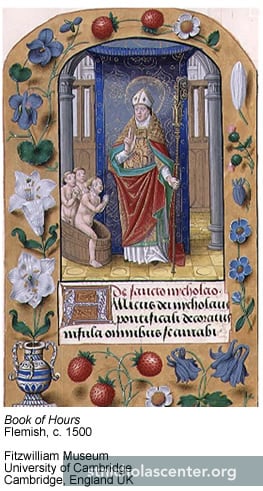 stnicholascenter.org
De sancto nycholao.
Amicus dei nicholaus
pontificali decoratus
infula omnibus se amabi
Book of Hours
Flemish, c. 1500
Fitzwilliam Museum
University of Cambridge
Cambridge, England UK
stnicholascenter.org